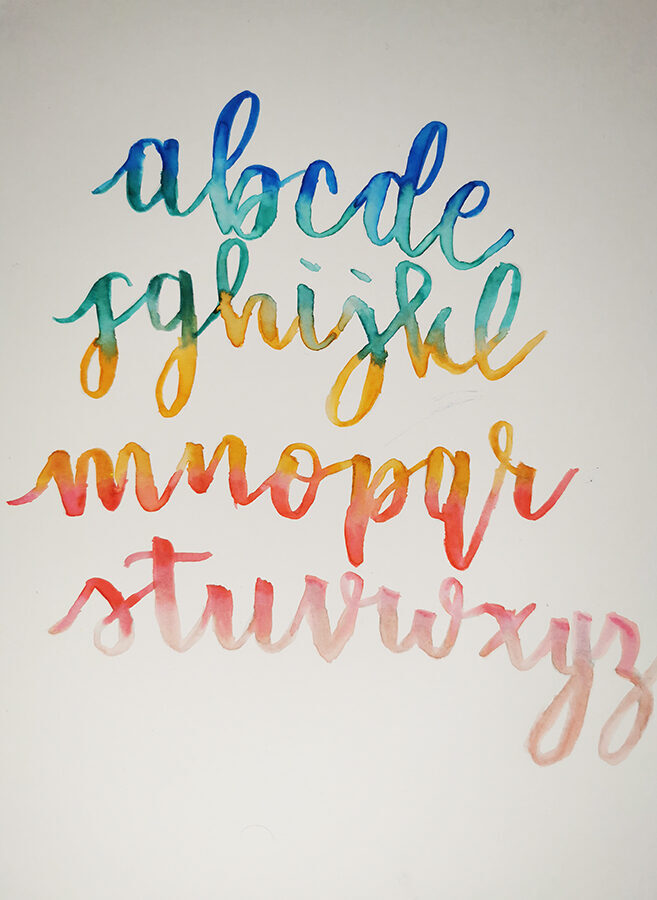 abcde
fghijkl
mnopqr
stuvwxyz